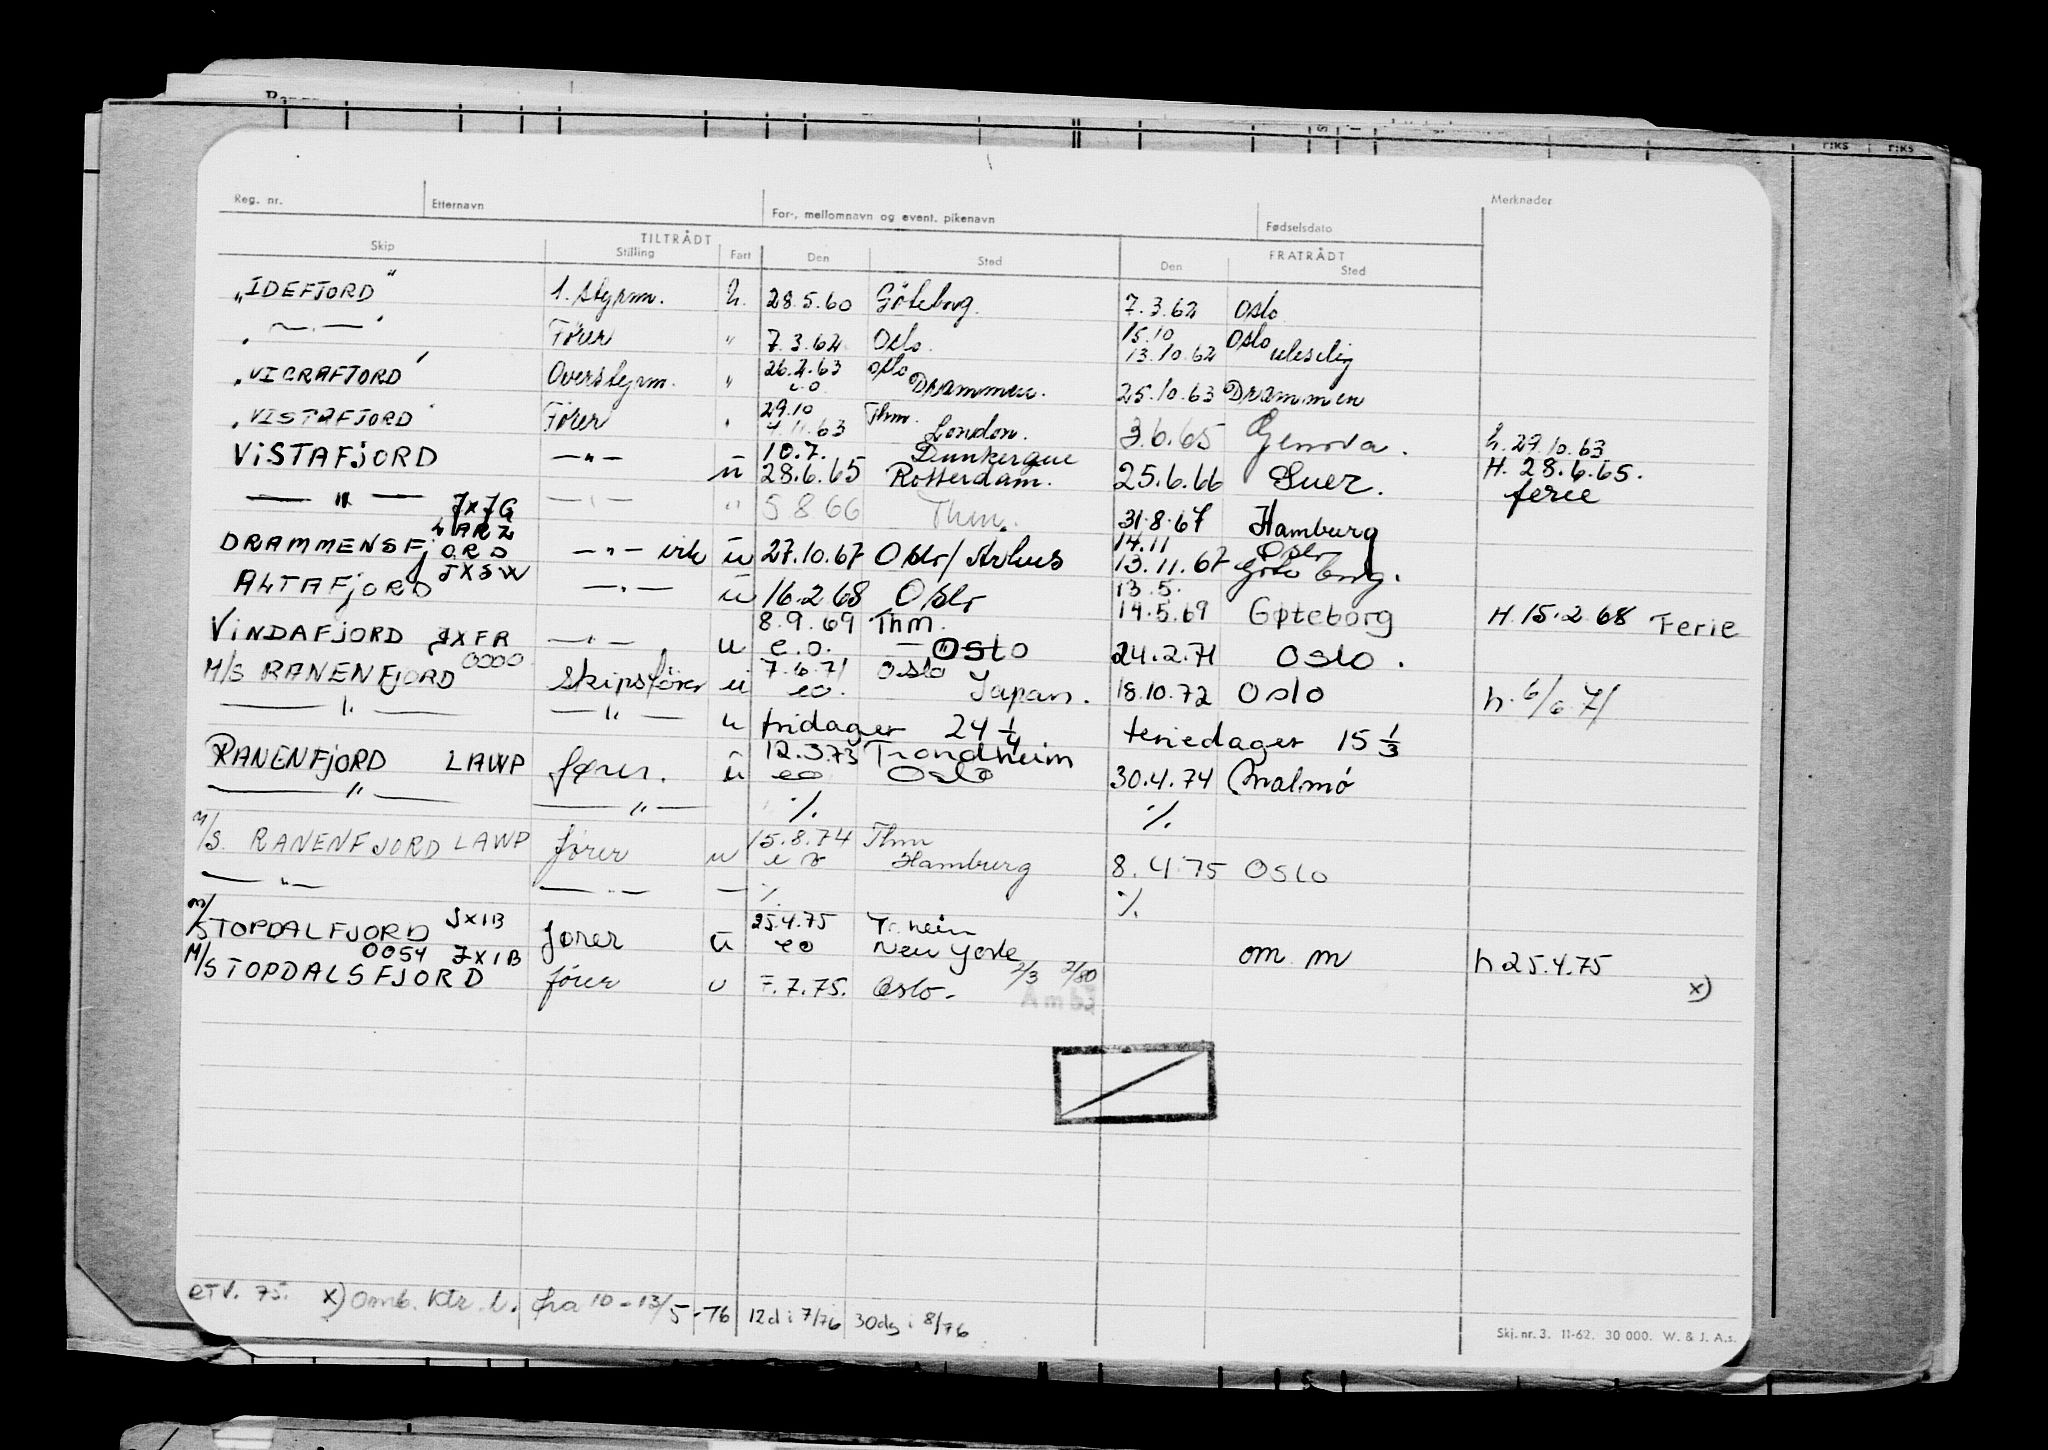 Reg. nr. Etternavn For-, mellomnavn og event. pikenavn Fødselsdato Merknader
TILTRÅDT FRATRÅDT
Skip Stilling Fart Den Sted Den Sted
"IDEFJORD" 1. styrm. u. 28.5.60 Göteborg. 7.3.62 Oslo
" — . — " Fører " 7.3.62 Oslo. 15.10 Oslo
13.10.62 uteselig
"VIGRAFJORD" Overstyrm. " 26.2.63 Oslo
e.o Drammen. 25.10.63 Drammen
"VISTAFJORD" Fører " 29.10 Thm.
4.11.63 London. 3.6.65 Genova. h. 27.10.63
ViSTAFJORD — " — u 10.7. Dunkerque
28.6.65 Rotterdam. 25.6.66 Suez. H. 28.6.65.
ferie
— " — JXJG — " — " 5 8 66 Thm. 31.8.67 Hamburg
LARZ
DRAMMENSFJORD — " — vik u 27.10.67 Oslo/Århus 14.11 Oslo
13.11.67 Göteborg.
ALTAFJORD JXSW — " — u 16.2 68 Oslo 13.5.
14.5.69 Gøteborg H. 15.2.68 Ferie
8.9.69 Thm.
ViNDAFJORD JXFR — " — u e.o. — Oslo 24.2.71 Oslo.
M/S RANENFJORD 0000 Skipsfører u 7.6.71 Oslo
eo. Japan. 18.10.72 Oslo h. 6/6.71
— " — — " — u fridager 24 1/4 feriedager 15 1/3
RANENFJORD LAWP fører. u 12.3.73 Trondheim
eo Oslo 30.4.74 Malmö
— " — — " — ./. ./.
M/S. RANENFJORD LAWP fører u 15.8.74 Thm
e o Hamburg 8.4.75 Oslo
— " — — " — — ./. ./.
M/S TOPDALFJORD JXIB fører u 25.4.75 Tr.heim
eo New York om m h 25.4.75
M/S TOPDALSFJORD 0054 JXIB fører u 7.7.75. Oslo. 2/3 2/80 x)
eTV. 75. x) Omb. ktr. l. fra 10-13/5-76 12 d i 7/76 30 dg i 8/76
Skj. nr. 3. 11-62. 30 000. W. & J. A.s.